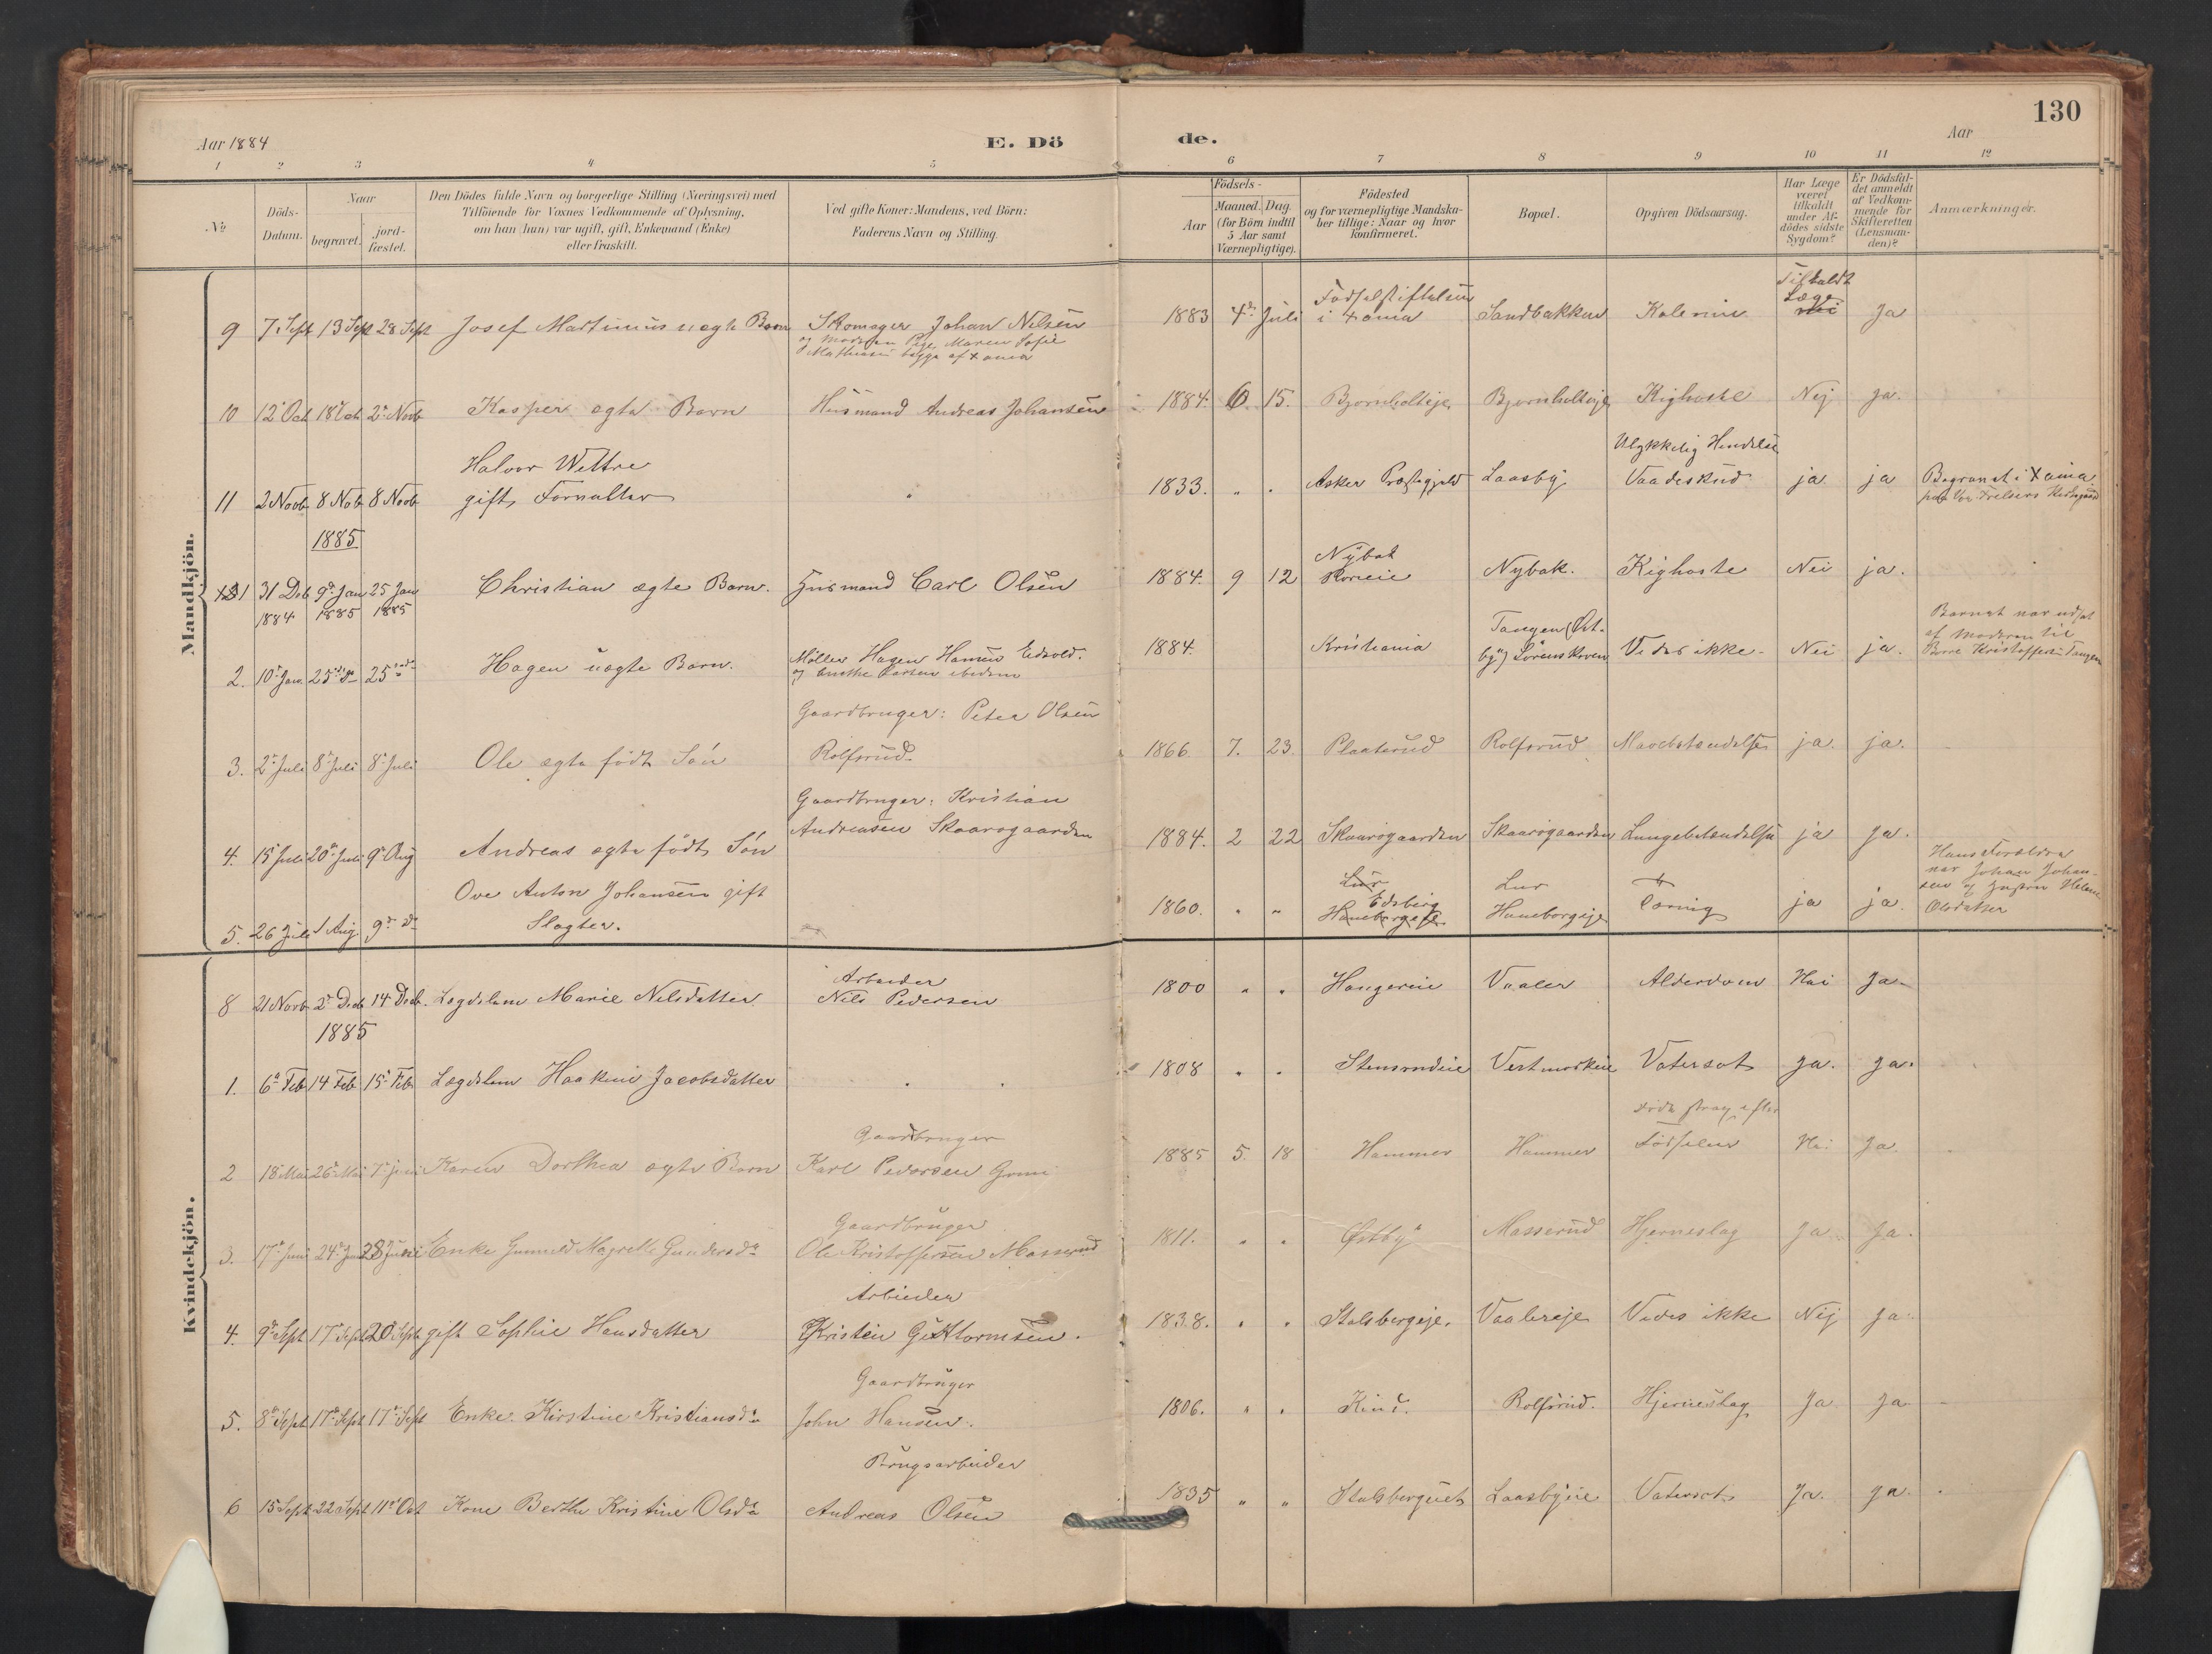 130
Aar 1884
E. Dö
de.
Aar
1 2 3 4 5 6 7 8 9 10 11 12
No
Döds-
Datum.
Naar
begravet.
jord-
fæstet.
Den Dödes fulde Navn og borgerlige Stilling (Næringsvei) med
Tilföiende for Voxnes Vedkommende af Oplysning,
om han (hun) var ugift, gift, Enkemand (Enke)
eller fraskilt.
Ved gifte Koner: Mandens, ved Börn:
Faderens Navn og Stilling.
Födsels-
Aar
Maaned. Dag
(for Börn indtil
5 Aar samt
Værnepligtige).
Födested
og for værnepligtige Mandska-
ber tillige: Naar og hvor
konfirmeret.
Bopæl.
Opgiven Dödsaarsag.
Har Læge
været
tilkaldt
under Af-
dödes sidste
Sygdom?
Er Dödsfal-
det anmeldt
af Vedkom-
mende for
Skifteretten
(Lensman-
den)?
Anmærkninger.
Mandkjön.
9 7 Sept 13 Sept 28 Sept Josef Martinius uægte Barn Skomager Johan Nilsen
og Moderen Pige Maren Sofie
Mathisen begge af Xania
1883 4de Juli Födselsstiftelsen
i Xania Sandbakken Kolerine Tilkaldt
Læge
Nei Ja
10 12 Oct 18 Oct 2 Novb Kasper ægte Barn Husmand Andreas Johansen 1884. 6 15. Bjørnholteje Bjørnholteje Kighoste Nej ja.
11 2 Novb 8 Nob 8 Novb Halvor Wettre
gift, Forvalter 1833. " " Asker Præstegjeld Laasby Ulykkelig Hendelse
Vaadeskud ja ja Begravet i Xania
paa Vor Frelsers Kirkegaard
1885
1 31 Deb
1884 9de Jan
1885 25 Jan
1885 Christian ægte Barn. Husmand Carl Olsen 1884. 9 12 Nybak
Korseie Nybak. Kighoste Nei ja.
2. 10 Jan. 25de Do 25 Hagen uægte Barn. Möller Hagen Hansen Eidsvold.
og Anethe Larsen ibidem
1884. Kristiania Tangen (Øst-
by) Sörenskoven Vides ikke. Nei ja. Barnet var udsat
af Moderen til
Borre Kristoffersen Tangen
3. 2 Juli 8 Juli 8 Juli Ole ægte födt Sön Gaardbruger: Peter Olsen
Rolfsrud. 1866 7. 23. Plaaterud Rolfsrud ja. ja.
4. 15 Juli 20 Juli 9 Aug Andreas ægte födt Sön Gaardbruger: Kristian
Andreasen Skaarogaarden 1884. 2 22 Skaarogaarden Skaarogaarden Lungebetændelse ja ja.
5. 26 Juli 1 Aug 9 Do Ove Anton Johansen gift
Slagter. 1860. " " Lur
Edsberg
Haneborgeje Lur
Haneborgeje Tæring ja ja. Hans Forældre
var Johan Johan-
sen og Hustru Helene
Olsdatter
Kvindekjön.
8 21 Novb 2 Deb 14 Deb. Lægdslem Marie Nilsdatter Arbeider
Nils Pedersen 1800 " " Haugereie Vaaler Alderdom Nei Ja.
1885
1. 6 Feb 14 Feb 15 Feb Lægdslem Haakine Jacobsdatter 1808 " " Stensrudeie Vestmorkeie Vatersot Ja. Ja.
2 18 Mai 26 Mai 7 juni Karen Dorthea ægte Barn Gaardbruger
Karl Pedersen 1885 5. 18 Hammer Hammer Döde strax efter
Födselen Nei Ja.
3. 17 Juni 24 Juni 28 Juni Enke Gunnild Magrethe Gundersdr Gaardbruger
Ole Kristoffersen Masserud 1811. " " Østby Masserud Hjerneslag Ja Ja.
4. 9 Sept 17 Sept 20 Sept gift Sophie Hansdatter Arbeider
Kristen Guttormsen. 1838. " " Stalsbergeje. Vaalereje Vides ikke Nej ja.
5. 8 Sept 17 Sept 17 Sept Enke. Kirstine Kristiansdr Gaardbruger
John Hansen. 1806. " " Kind. Rolfsrud. Hjerneslag Ja Ja
6 15 Sept 22 Sept 11 Oct Kone Berthe Kristine Olsdr Brugsarbeider
Andreas Olsen 1835 " " Laasbyeie Vatersot Ja. ja.